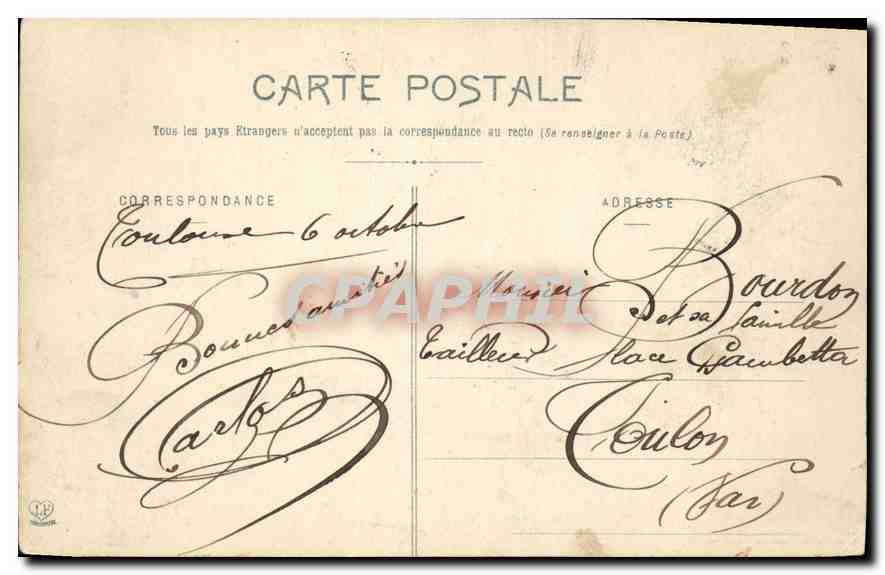 CARTE POSTALE
Tous les pays Etrangers n'acceptent pas la correspondance au recto (Se renseigner à la Poste).
CORRESPONDANCE
Toulouse 6 octobre
Bonnes amitiés
Carlos
ADRESSE
Monsieur Bourdon
et sa famille
Tailleur Place Gambetta
Toulon
(Var)
CPAPHIL